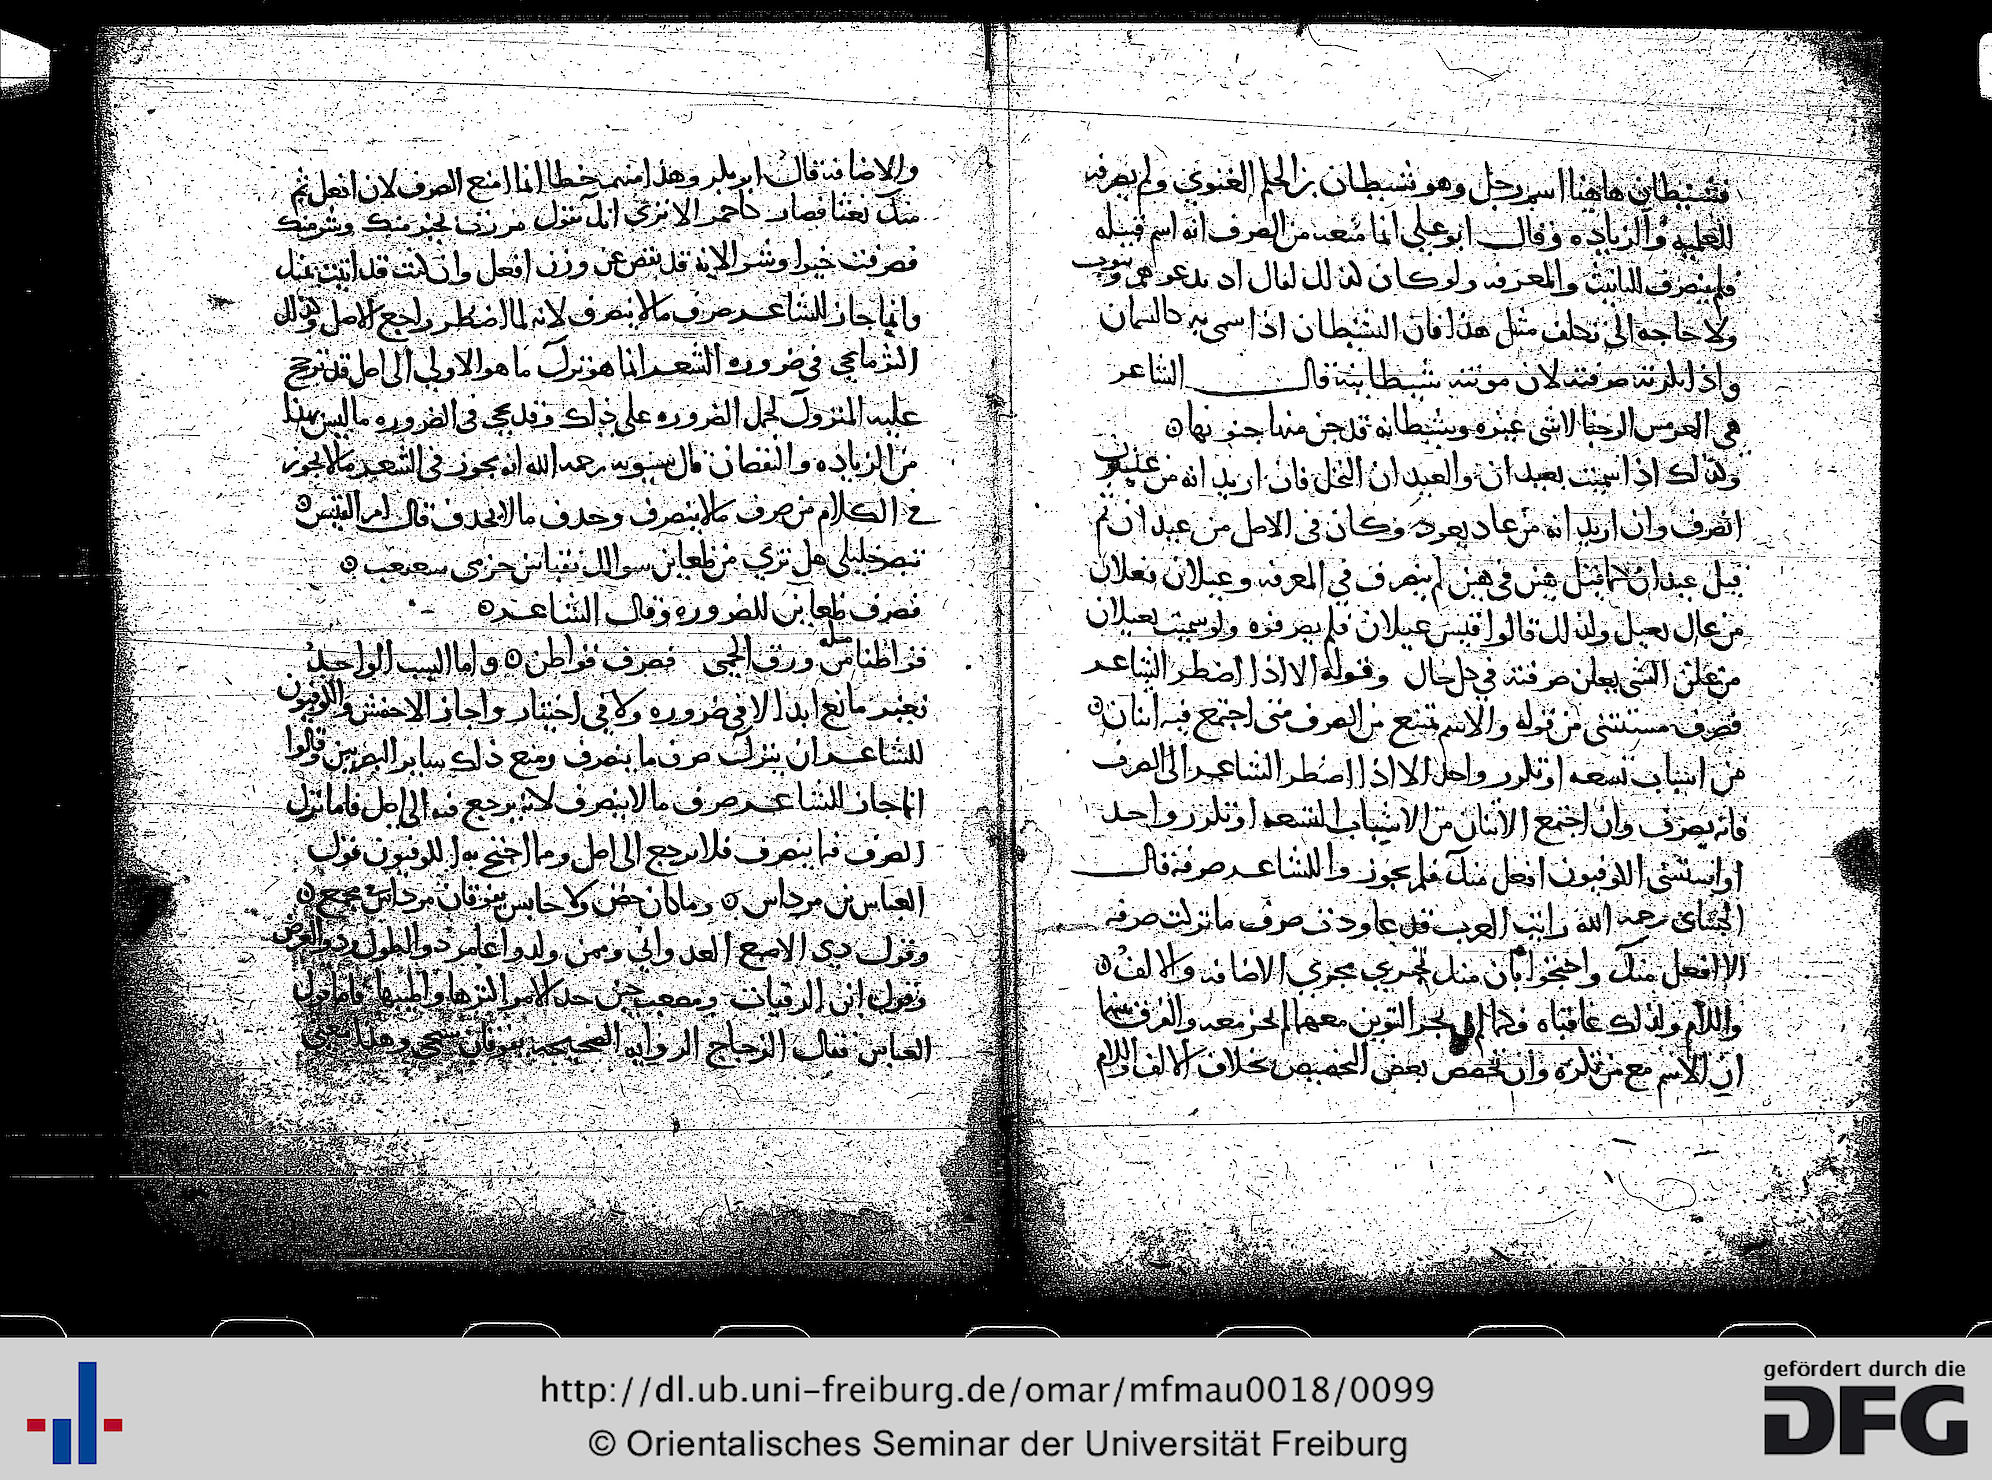 فشيطان هاهنا اسم رجل وهو شيطان بن الحكم الغنوي ولم يصرفه
للعلميه والزياده وقال ابو علي انما منعه من الصرف انه اسم قبيله
فلم ينصرف للتانيث والمعرفه ولو كان كذلك لقال اذ يدعوهم وثوب
ولا حاجه الى تكلف مثل هذا فان الشيطان اذا سمي به كالسمان
واذا نكرته صرفته لان مونثه شيطانه قال الشاعر
هي العرمس الوجنا لاشى غيره وشيطانه قد جن منها جنونها
وكذلك اذا سميت بعيدان والعيدان النخل فان اريد انه من
انصرف وان اريد انه من عاد يعود وكان في الاصل من عيدان ثم
قيل عيدان كما قيل هين في هين لم ينصرف في المعرفه وعيلان فعلان
من عال يعيل ولذلك قالوا قيس عيلان فلم يصرفوه ولو سميت بعيلان
من علن الشي يعلن صرفته في كل حال وقوله الا اذا اضطر الشاعر
فصرف مستثنى من قوله والاسم تمتنع من الصرف متى اجتمع فيه اثنان
من اسباب تسعه او تكرر واحد الا اذا اضطر الشاعر الى الصرف
فانه يصرف وان اجتمع الاثنان من الاسباب التسعه او تكرر واحد
واستثنى الكوفيون افعل منك فلم يجوزوا للشاعر صرفه قال
الكسائ رحمه الله رايت العرب قد عاودت صرف ما تركت صرفه
الا افعل منك واحتجوا بان منك تجري مجرى الاضافه والالف
واللام ولذلك عاقبتاه فكما لم يجز التنوين معهما لم يجز معه والفرق بينهما
ان الاسم مع من نكره وان تخصص بعض التخصيص بخلاف الالف واللام
والاضافه قال ابو بكر وهذا منهم خطا انما امتنع الصرف لان افعل ثم
منك نعتا فصار كاحمر الا ترى انك تقول مررت بخير منك وشر منك
فصرفت خيرا وشرا لانه قد نقص عن وزن افعل وان كنت قد اتيت بمنك
وانما جاز للشاعر صرف ما لا ينصرف لانه لما اضطر راجع الاصل وكذلك
اكثر ما يجي في ضروره الشعر انما هو ترك ما هو الاولى الى اصل قد ترجح
عليه المتروك لحمل الضروره على ذلك وقد يجي في الضروره ما ليس بهذا
من الزياده والنقصان قال سيبويه رحمه الله انه يجوز في الشعر ما لا يجوز
في الكلام من صرف ما لا ينصرف وحذف ما لا يحذف قال امر القيس
تبصر خليلي هل ترى من ظعاين سوالك نقبا بين حزمى شعبعب
فصرف ظعاين للضروره وقال الشاعر
قواطنا من ورق الحمى فصرف قواطن واما السبب الواحد
فغير مانع ابدا لا في ضروره ولا في اختيار واجاز الاخفش والكوفيون
للشاعر ان يترك صرف ما ينصرف ومنع ذلك ساير البصريين وقالوا
انما جاز للشاعر صرف ما لا ينصرف لانه يرجع فيه الى اصل فاما ترك
الصرف فيما ينصرف فلا يرجع الى اصل ومما احتج به الكوفيون قول
العباس بن مرداس وما كان حصن ولا حابس يفوقان مرداس في مجمع
وقول ذي الاصبع العدواني وممن ولدوا عامر ذو الطول وذو العرض
وقول ابن الرقيات ومصعب حين جد الامر اكثرها واطيبها فاما قول
العباس فقال الزجاج الروايه الصحيحه يفوقان شيخي وهكذا
http://dl.ub.uni-freiburg.de/omar/mfmau0018/0099
© Orientalisches Seminar der Universität Freiburg
gefördert durch die
DFG